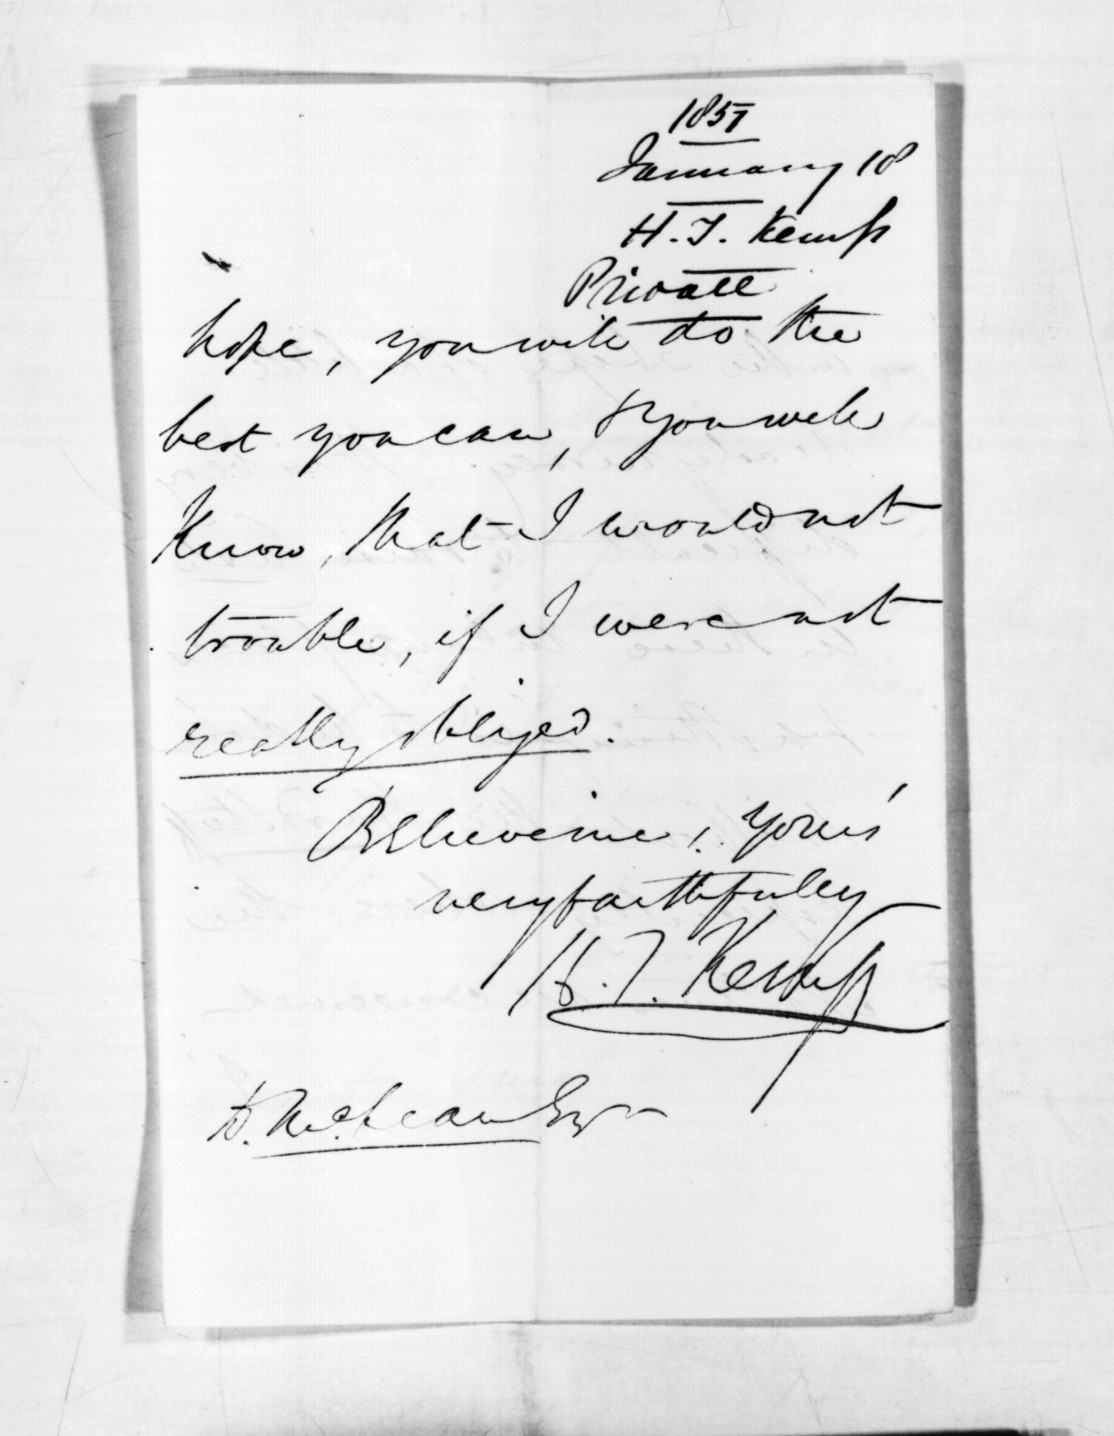 1857
January 18
H. T. Kemp
Private
hope, you will do the
best you can, & you will
know, that I would not
trouble, if I were not
really obliged.
Believe me, your's
very faithfully
H. T. Kemp
D. McLean Esqr